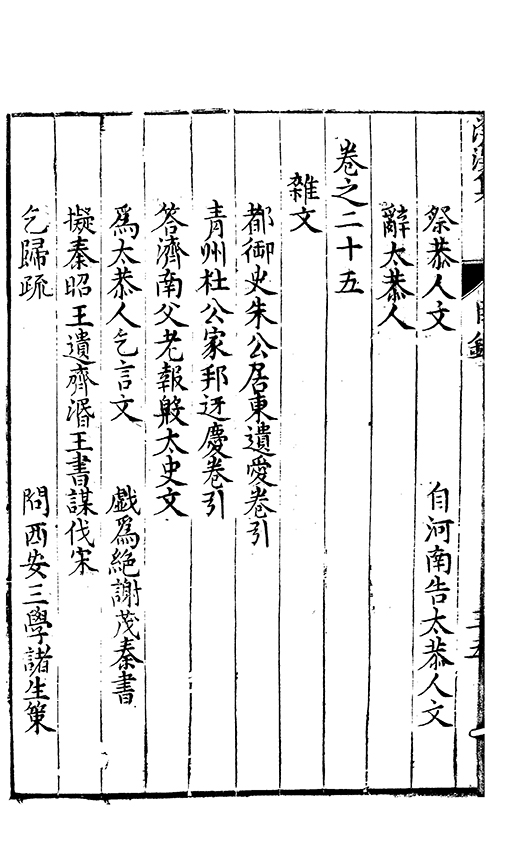 祭恭人文　自河南告太恭人文
辭太恭人
卷之二十五
雜文
都御史朱公居東遺愛卷引
青州杜公家邦迓慶卷引
答濟南父老報殷太史文
爲太恭人乞言文　戱爲絶謝茂秦書
擬秦昭王遺齊湣王書謀伐宋
乞歸疏　問西安三學諸生策